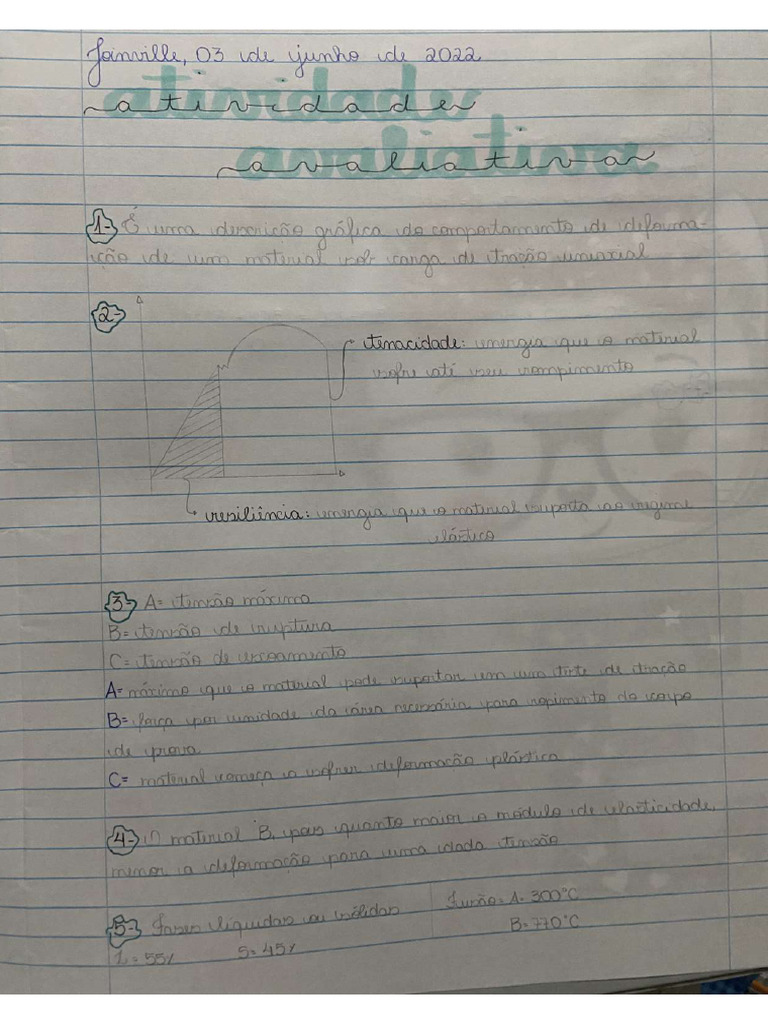 Joinville, 03 de junho de 2022
atividade
avaliativa
1- É uma descrição gráfica do comportamento de deforma-
ção de um material sob carga de tração uniaxial
2-
tenacidade: energia que o material
sofre até seu rompimento
resiliência: energia que o material suporta ao regime
elástico
3- A= tensão máxima
B= tensão de ruptura
C= tensão de escoamento
A= máximo que o material pode suportar em um teste de tração
B= força por unidade da área necessária para ropimento do corpo
de prova
C= material começa a sofrer deformação plástica
4- O material B, pois quanto maior o módulo de elasticidade,
menor a deformação para uma dada tensão
5- Fases líquidas ou sólidas
L = 55% S = 45%
Fusão: A- 300°C
B= 770°C